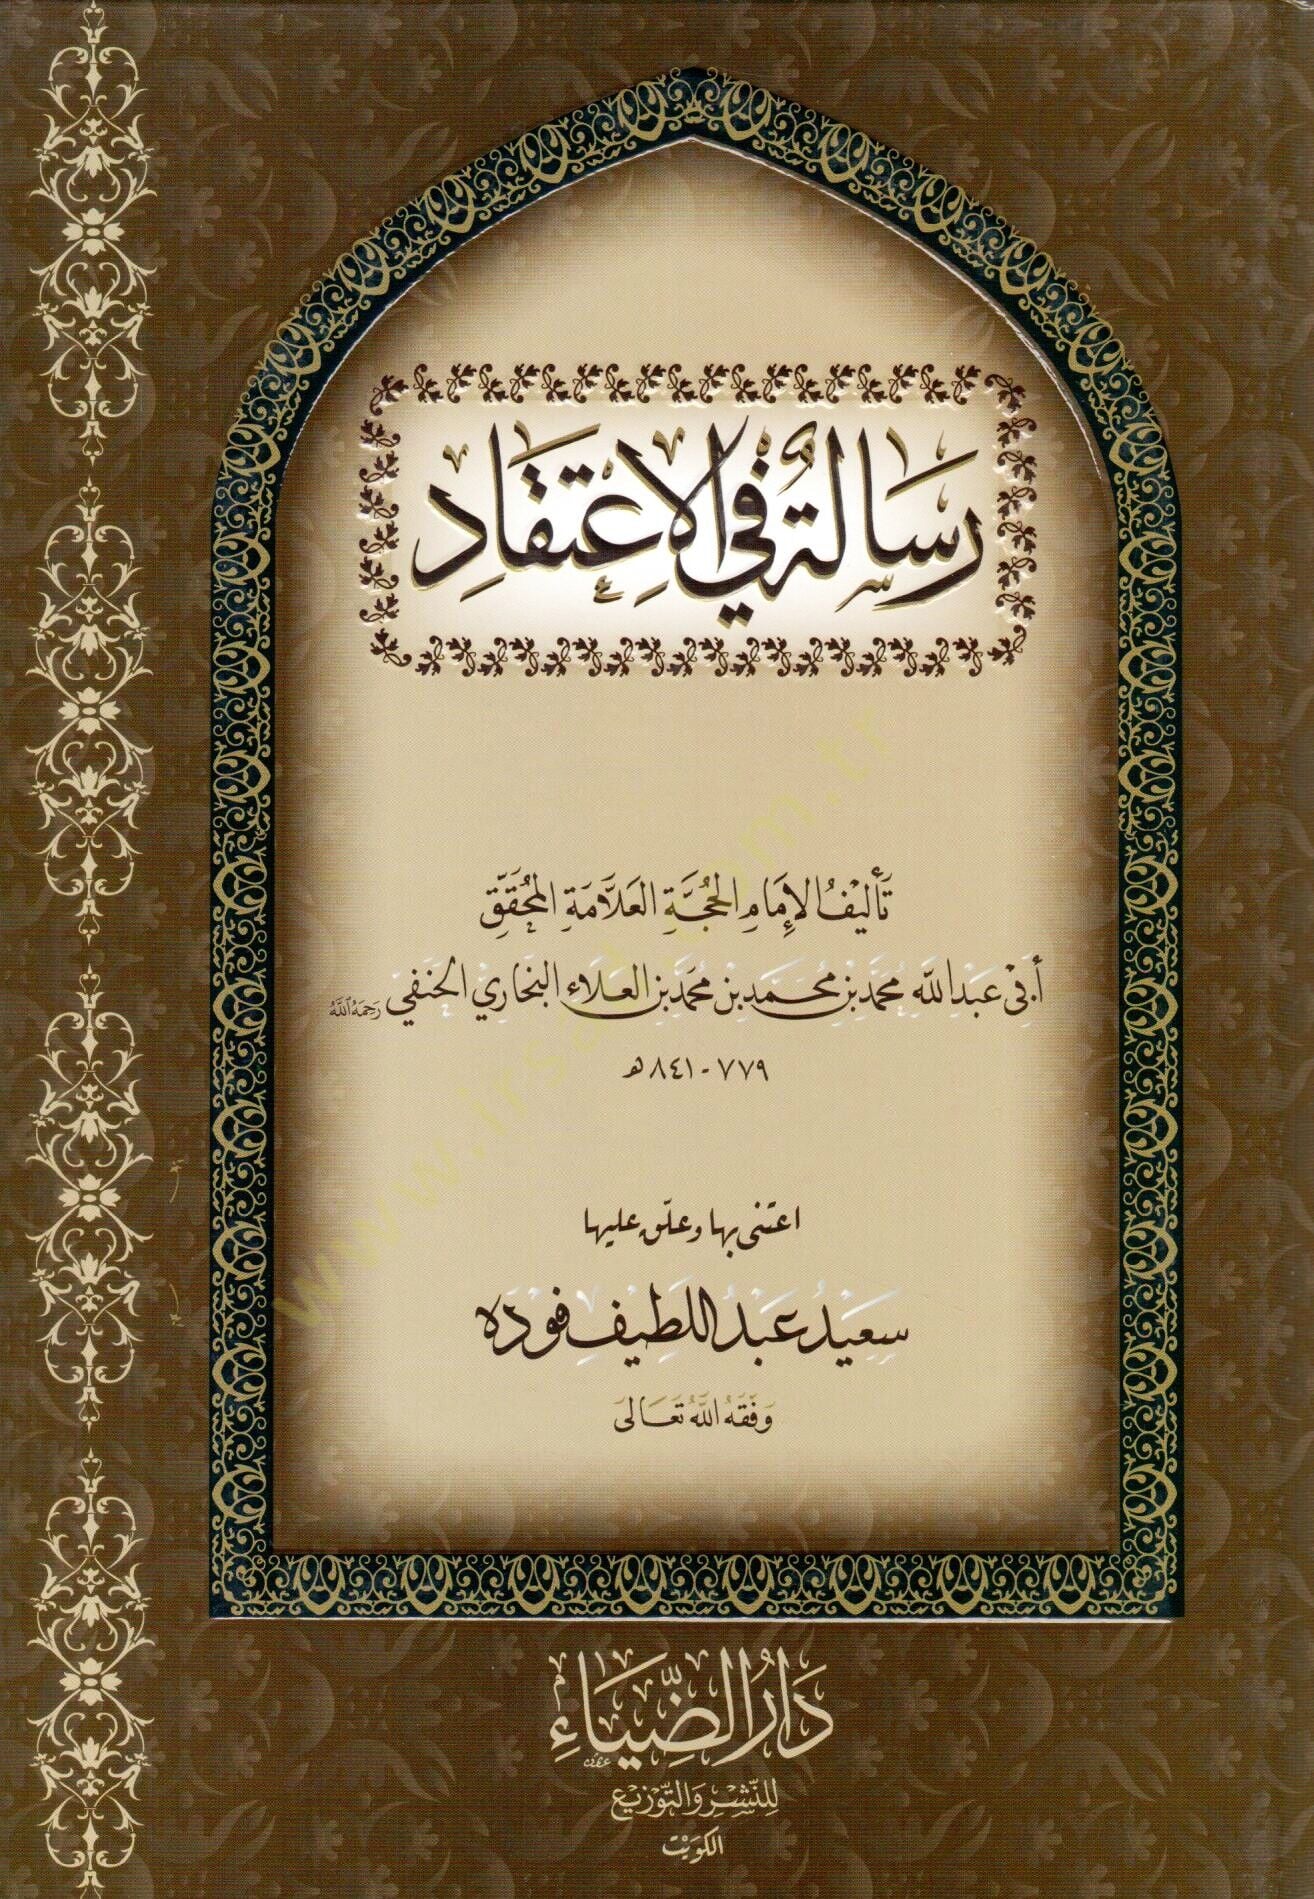 رسالة في الاعتقاد
تأليف الإمام الحجة العلامة المحقق
أبي عبد الله محمد بن محمد بن محمد بن العلاء البخاري الحنفي رحمه الله
٧٧٩ - ٨٤١ هـ
اعتنى بها وعلق عليها
سعيد عبد اللطيف فوده
وفقه الله تعالى
دار الضياء
للنشر والتوزيع
الكويت